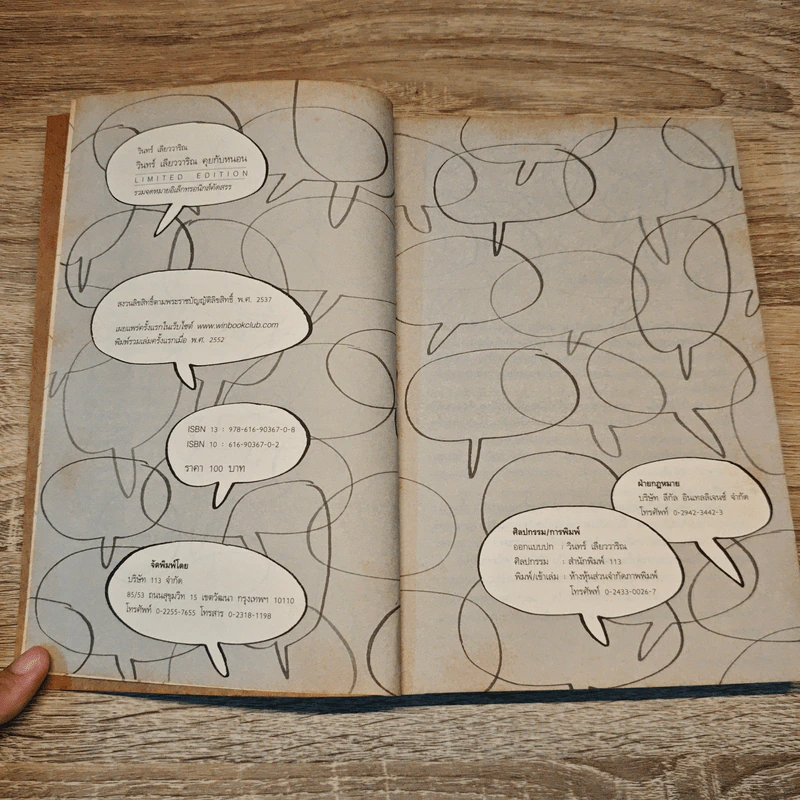 วินทร์ เลียววาริณ
วินทร์ เลียววาริณ คุยกับหนอน
LIMITED EDITION
รวมจดหมายอิเล็กทรอนิกส์คัดสรร
สงวนลิขสิทธิ์ตามพระราชบัญญัติลิขสิทธิ์ พ.ศ. 2537
เผยแพร่ครั้งแรกในเว็บไซต์ www.winbookclub.com
พิมพ์รวมเล่มครั้งแรกเมื่อ พ.ศ. 2552
ISBN 13 : 978-616-90367-0-8
ISBN 10 : 616-90367-0-2
ราคา 100 บาท
จัดพิมพ์โดย
บริษัท 113 จำกัด
85/53 ถนนสุขุมวิท 15 เขตวัฒนา กรุงเทพฯ 10110
โทรศัพท์ 0-2255-7655 โทรสาร 0-2318-1198
ฝ่ายกฎหมาย
บริษัท ลีกัล อินเทลลิเจนซ์ จำกัด
โทรศัพท์ 0-2942-3442-3
ศิลปกรรม/การพิมพ์
ออกแบบปก : วินทร์ เลียววาริณ
ศิลปกรรม : สำนักพิมพ์ 113
พิมพ์/เข้าเล่ม : ห้างหุ้นส่วนจำกัดภาพพิมพ์
โทรศัพท์ 0-2433-0026-7